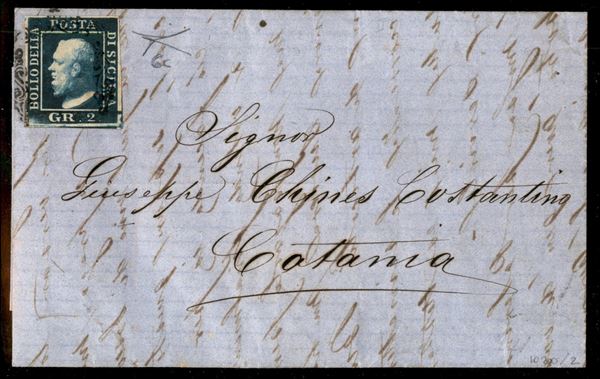 POSTA
BOLLO DELLA
DI SICILIA
GR. 2
6c
Signor
Giuseppe Chines Costantino
Catania